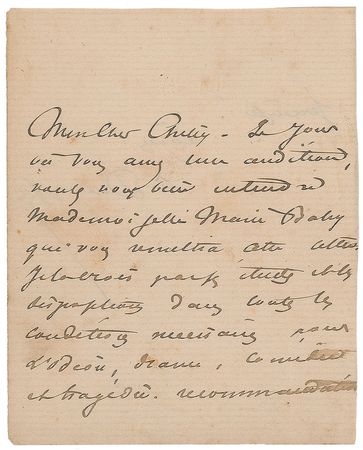 Mon Cher Chilly - Le jour
où vous avez une audition,
voulez vous bien entendre
Mademoiselle Marie Baby
qui vous remettra cette
Je la crois par ses études et
dispositions dans toutes les
conditions necessaires pour
L'odéon, drame, Comédie
et tragédie. recommandation